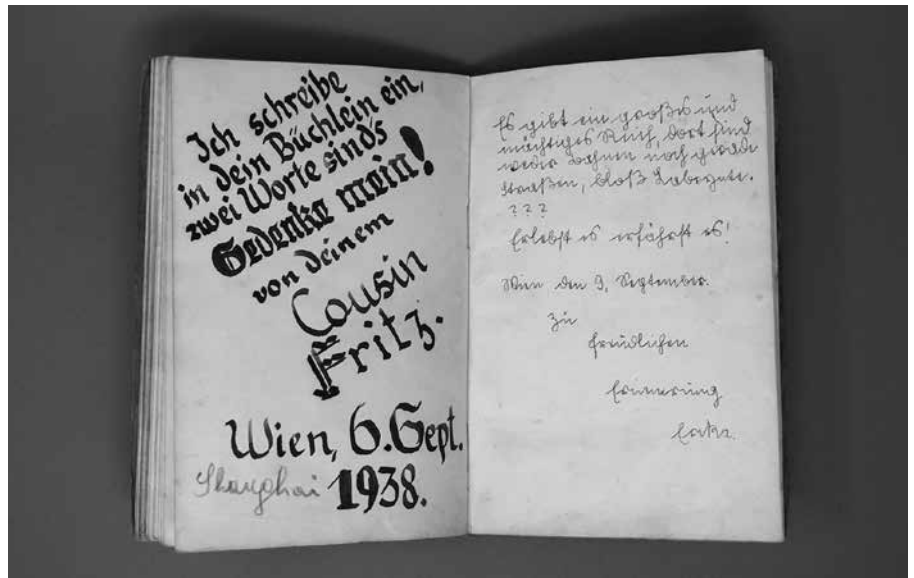 Ich schreibe
in dein Büchlein ein,
zwei Worte sind's
Gedenke mein!
von deinem
Cousin
Fritz.
Wien, 6. Sept.
Shanghai 1938.
Es gibt ein großes und
mächtiges Reich, dort sind
weder Bahnen noch gerade
Straßen, bloß
???
Erlebst es erfährst es!
Wien den 9. September.
Zu
freudlichen
Erinnerung